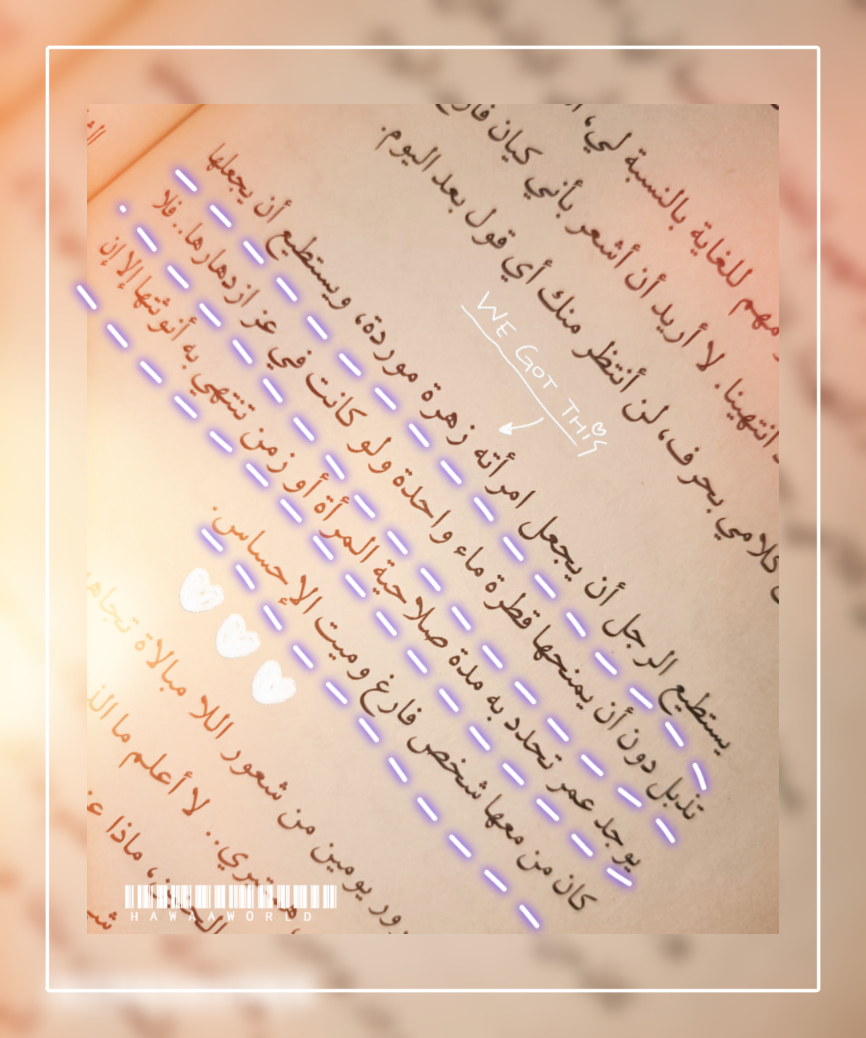 مهم للغاية بالنسبة لي،
انتهينا. لا أريد أن أشعر بأنني كيان
كلامي بحرف، لن أنتظر منك أي قول بعد اليوم.
WE GOT THIS
يستطيع الرجل أن يجعل امرأته زهرة موردة، ويستطيع أن يجعلها
تذبل دون أن يمنحها قطرة ماء واحدة ولو كانت في عز ازدهارها.. فلا
يوجد عمر تحدد به مدة صلاحية المرأة أو زمن تنتهي به أنوثتها إلا إن
كان من معها شخص فارغ وميت الإحساس.
يومين من شعور اللا مبالاة
لا أعلم ما
ماذا
HAWAAWORLD